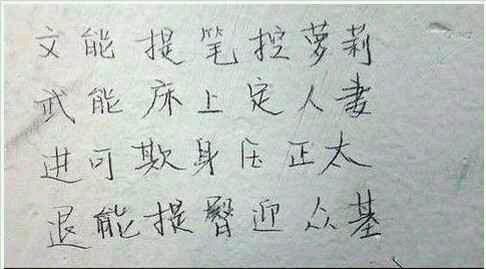 文能提笔控萝莉
武能床上定人妻
进可欺身压正太
退能提臀迎众基